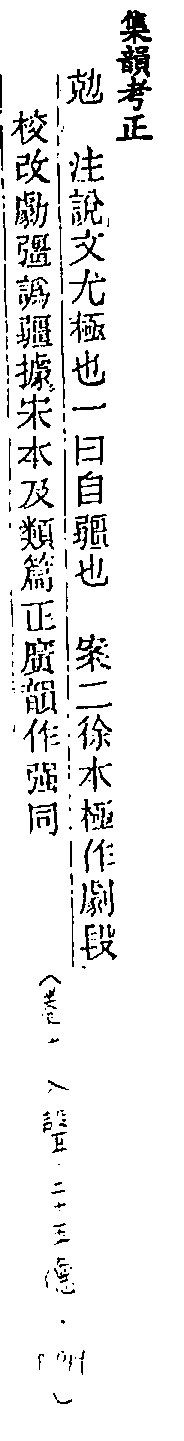 集韻考正
勀　注說文尤極也一曰自彊也　案二徐本極作劇段
校改勮彊譌疆據宋本及類篇正廣韻作强同
(卷十 入聲·二十五德·